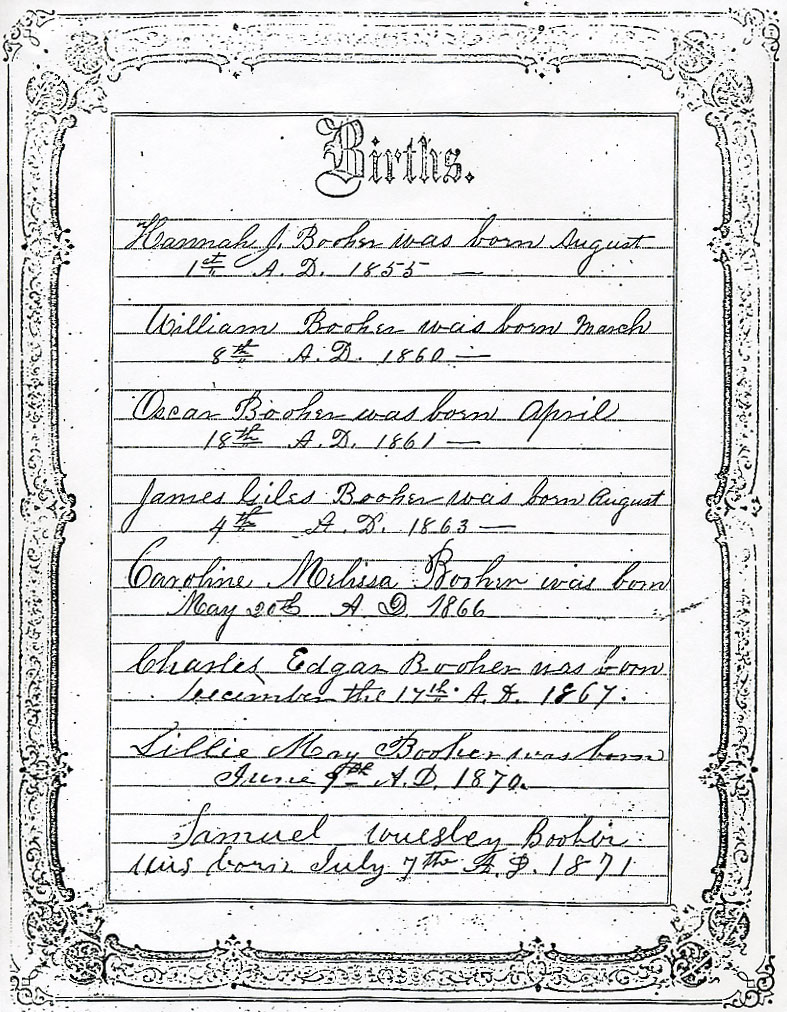 Births.
Hannah J. Booher was born August
1st A. D. 1855 —
William Booher was born March
8th A. D. 1860 —
Oscar Booher was born April
18th A. D. 1861 —
James Giles Booher was born August
4th A. D. 1863 —
Caroline Melissa Booher was born
May 20th A D 1866
Charles Edgar Booher was born
December the 17th. A. D. 1867.
Lillie May Booher was born
June 9th A. D. 1870.
Samuel Wuesley Booher
was born July 7th A. D. 1871